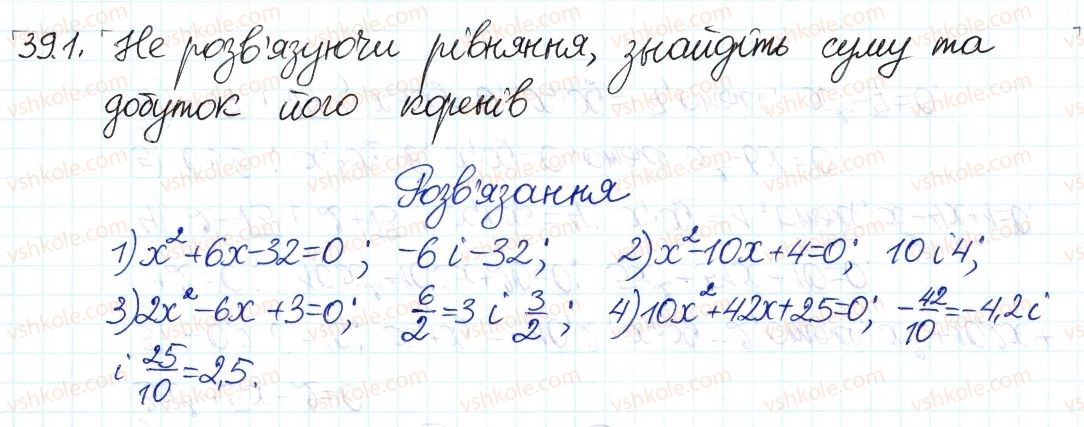 391. Не розв'язуючи рівняння, знайдіть суму та
добуток його коренів
Розв'язання
1) x² + 6x - 32 = 0; -6 і -32; 2) x² - 10x + 4 = 0; 10 і 4;
3) 2x² - 6x + 3 = 0; 6/2 = 3 і 3/2; 4) 10x² + 42x + 25 = 0; -42/10 = -4,2 і
і 25/10 = 2,5.